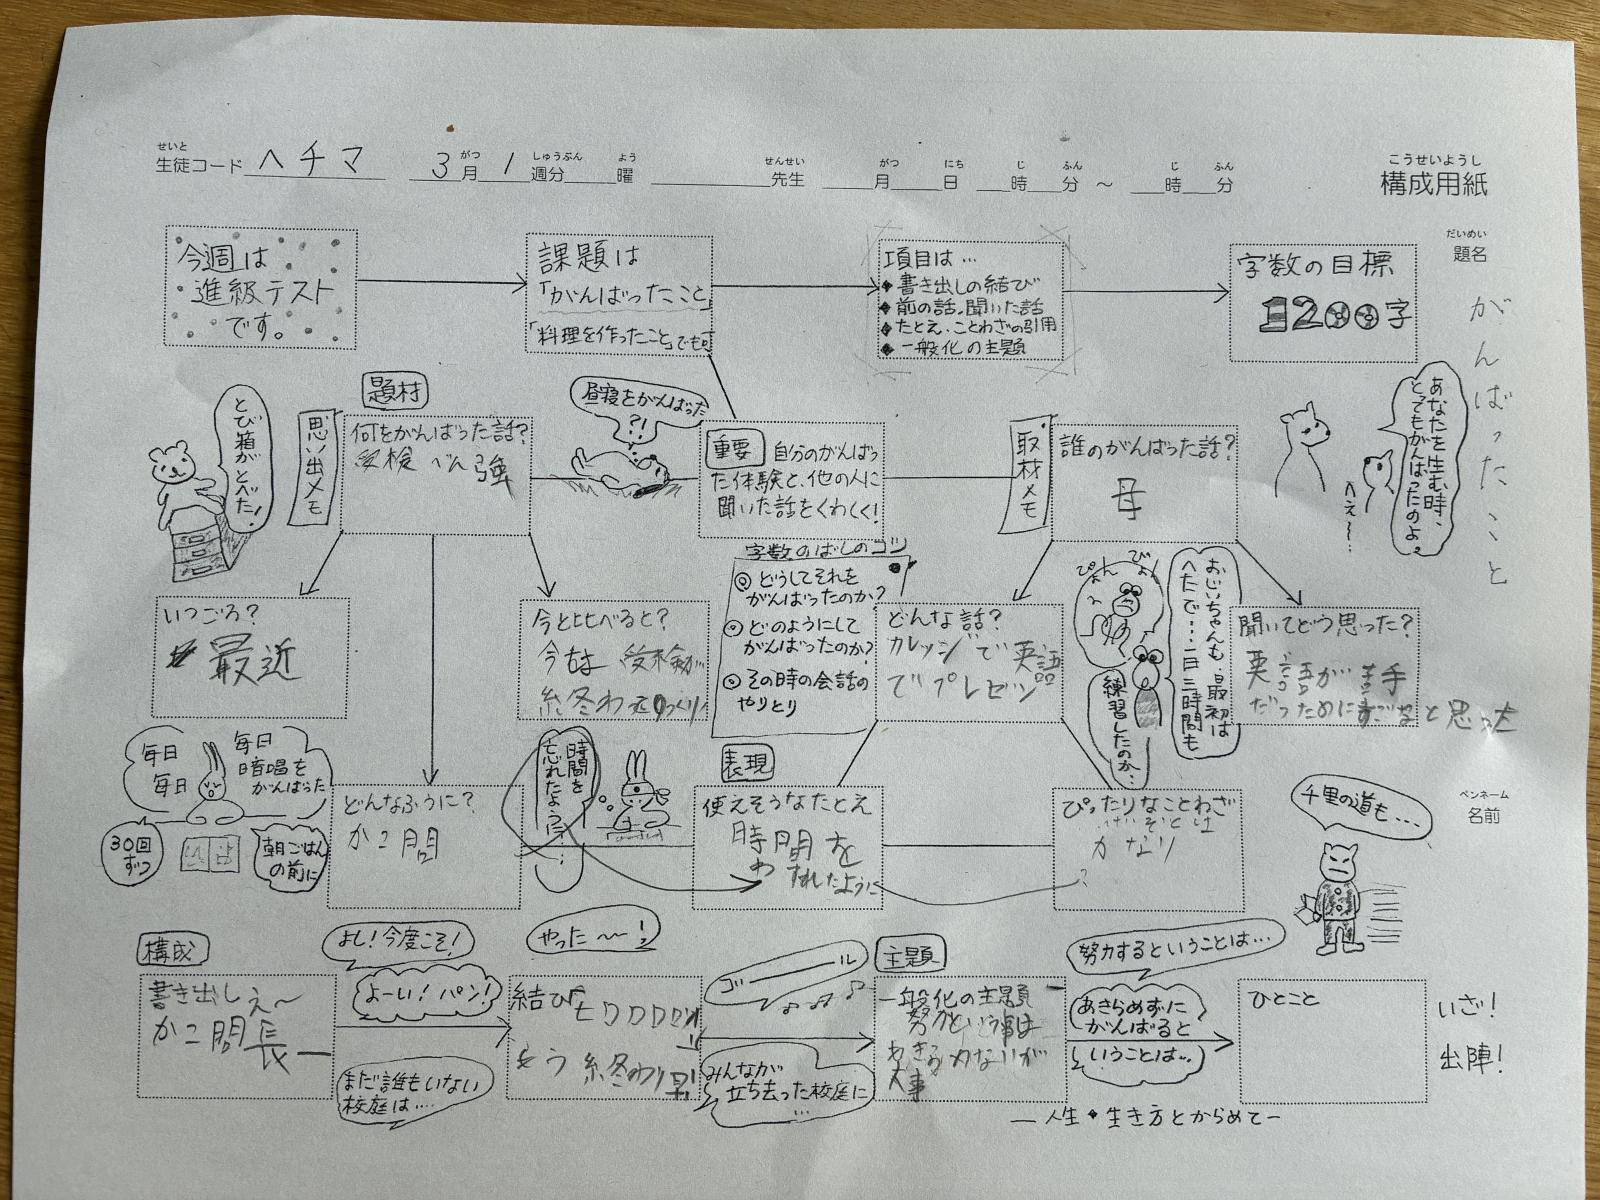 せいと
生徒コード ヘチマ 3月 1週分 曜 先生 月 日 時 分 ～ 時 分
がつ しゅうぶん よう せんせい がつ にち じ ふん じ ふん
こうせいようし
構成用紙
だいめい
題名
がんばったこと
今週は
進級テスト
です。
課題は
「がんばったこと」
「料理を作ったこと」でも可
項目は…
◆書き出しの結び
◆前の話,聞いた話
◆たとえ・ことわざの引用
◆一般化の主題
字数の目標
1200字
とび箱がとべた!
思い出メモ
題材
何をがんばった話?
昼寝をがんばった
?!
重要 自分のがんばっ
た体験と、他の人に
聞いた話をくわしく!
取材メモ
誰のがんばった話?
母
あなたを生む時、
とてもがんばったのよ。
へぇ～…
いつごろ?
最近
今と比べると?
字数のばしのコツ
◎どうしてそれを
がんばったのか?
◎どのようにして
がんばったのか?
◎その時の会話の
やりとり
どんな話?
カレッジで英語
でプレゼン
ぴょん ぴょん
おじいちゃんも、最初は
へたで…一日三時間も
練習したのか…
聞いてどう思った?
英語が苦手
だったのにすごいなと思った
毎日
毎日
毎日
暗唱を
がんばった
30回
ずつ
朝ごはん
の前に
どんなふうに?
かこ問
時間を
忘れたように…
表現
使えそうなたとえ
時間を
わすれたように
ぴったりなことわざ
かなり
?
千里の道も…
ペンネーム
名前
構成
書き出し え～
かこ問長―
よし!今度こそ!
よーい!パン!
まだ誰もいない
校庭は…
やった～!
結び
もう終わり早!
ゴール
みんなが
立ち去った校庭に
…
主題
一般化の主題
努力という事は
あきらめないが
大事
努力するということは…
あきらめずに
がんばると
いうことは…
ひとこと
いざ!
出陣!
―人生◆生き方とからめて―